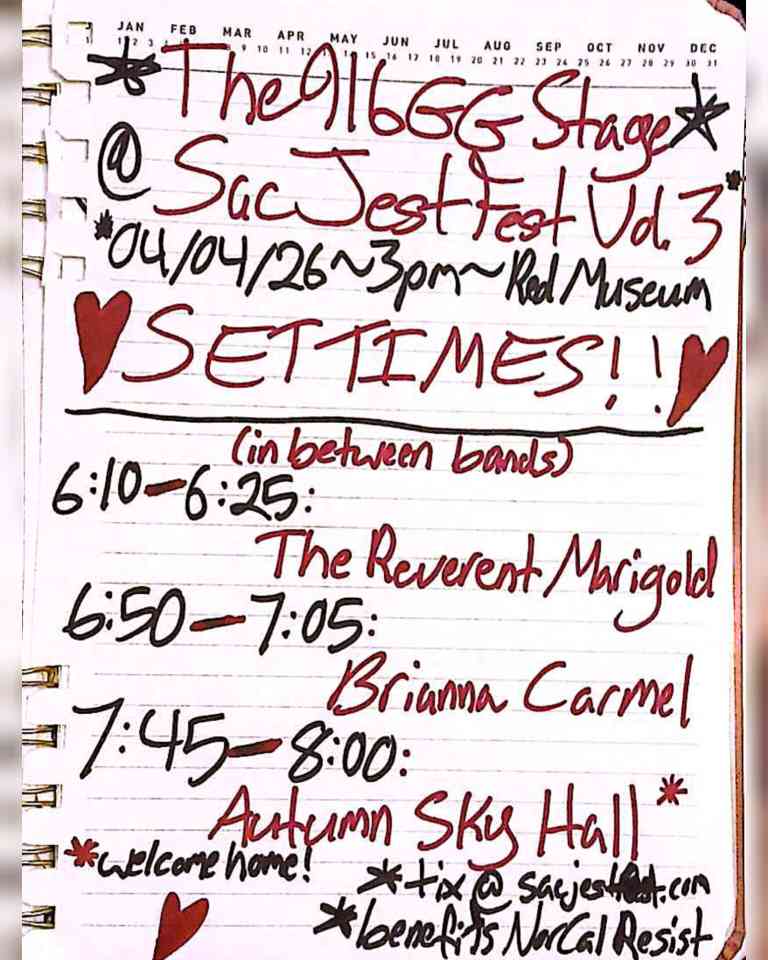 JAN FEB MAR APR MAY JUN JUL AUG SEP OCT NOV DEC
9 10 11 12 14 15 16 17 18 19 20 21 22 23 24 25 26 27 28 29 30 31
*The 916GG Stage*
@ SacJestFest Vol. 3*
*04/04/26~3pm~Red Museum
♥SET TIMES!!♥
(in between bands)
6:10-6:25:
The Reverent Marigold
6:50-7:05:
Brianna Carmel
7:45-8:00:
Autumn Sky Hall*
*welcome home!
*tix @ sacjestfest.com
*benefits NorCal Resist